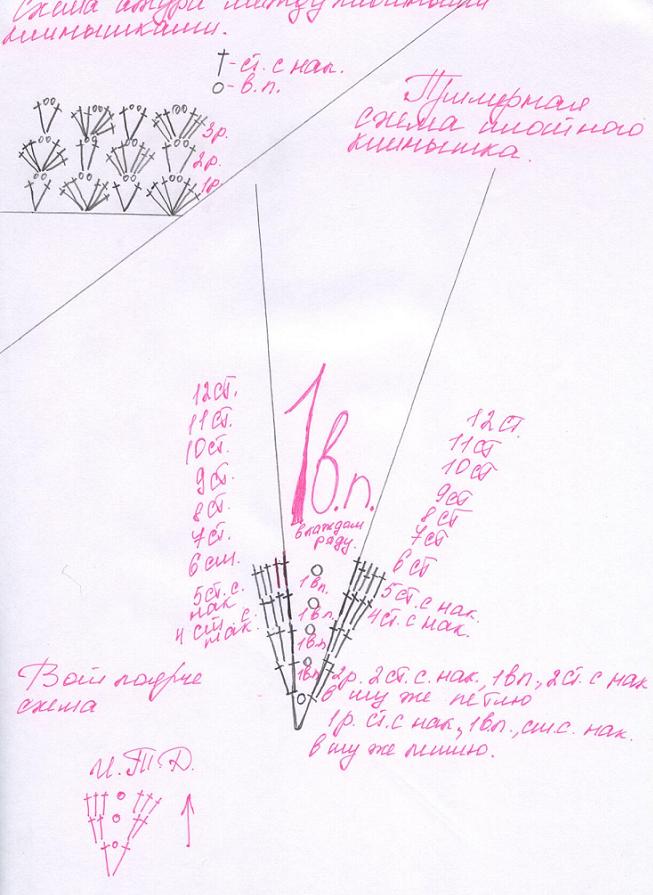 Схема ажура между плотными
клинышками.
†-ст.с нак.
о-в.п.
3р.
2р.
1р.
Примерная
схема плотного
клинышка.
12ст.
11ст.
10ст.
9ст.
8ст.
7ст.
6ст.
5ст.с.
нак.
4ст.с.
нак.
1в.п.
в каждом
ряду.
1вп.
1вп.
1вп.
1вп.
12ст.
11ст
10ст
9ст
8ст
7ст
6ст
5ст.с нак.
4ст.с нак.
2р. 2ст.с.нак, 1вп., 2ст.с нак
в ту же петлю
1р. ст.с нак., 1вп., ст.с. нак.
в ту же петлю.
Вот
схема
И.Т.Д.